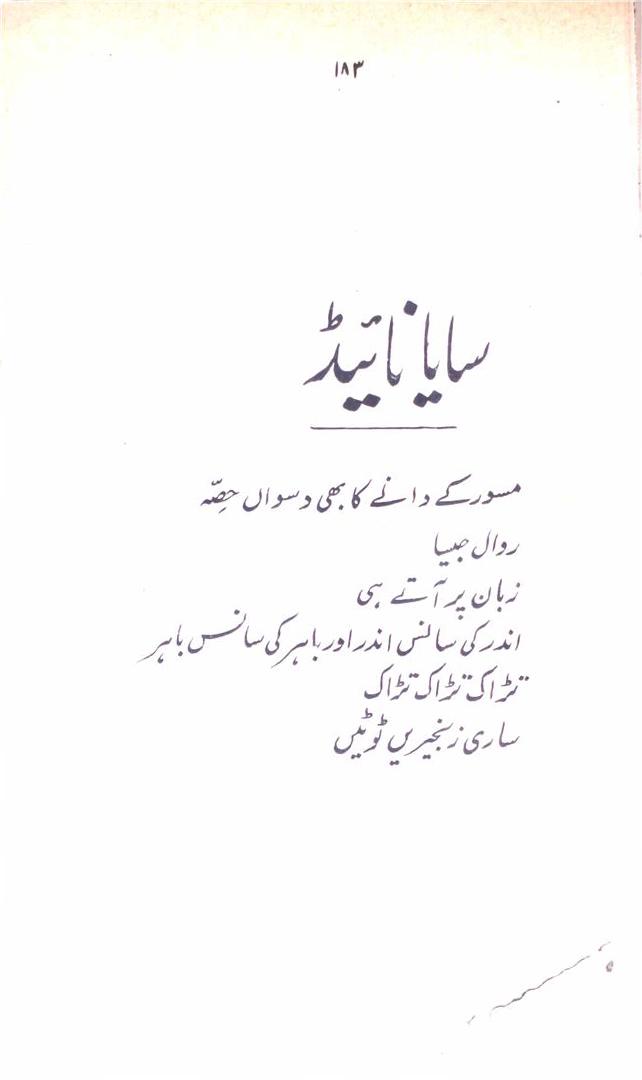 ۱۸۳
سایانائیڈ
مسور کے دانے کا بھی دسواں حِصّہ
رواں جیسا
زبان پر آتے ہی
اندر کی سانس اندر اور باہر کی سانس باہر
تڑاک تڑاک تڑاک
ساری زنجیریں ٹوٹیں